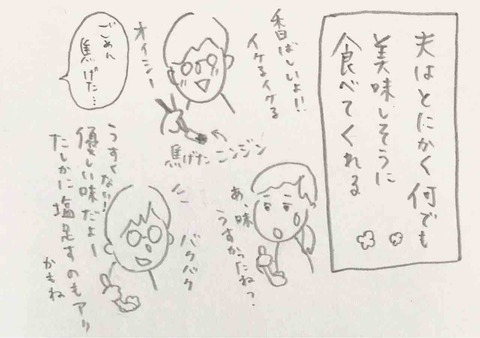 夫はとにかく何でも
美味しそうに
食べてくれる
香ばしいよ!!
イケるイケる
オイシー
ごめん
焦げた…
焦げたニンジン
あ、味
うすかったね?
パクパク
うすくない!
優しい味だよー
たしかに塩足すのもアリ
かもね